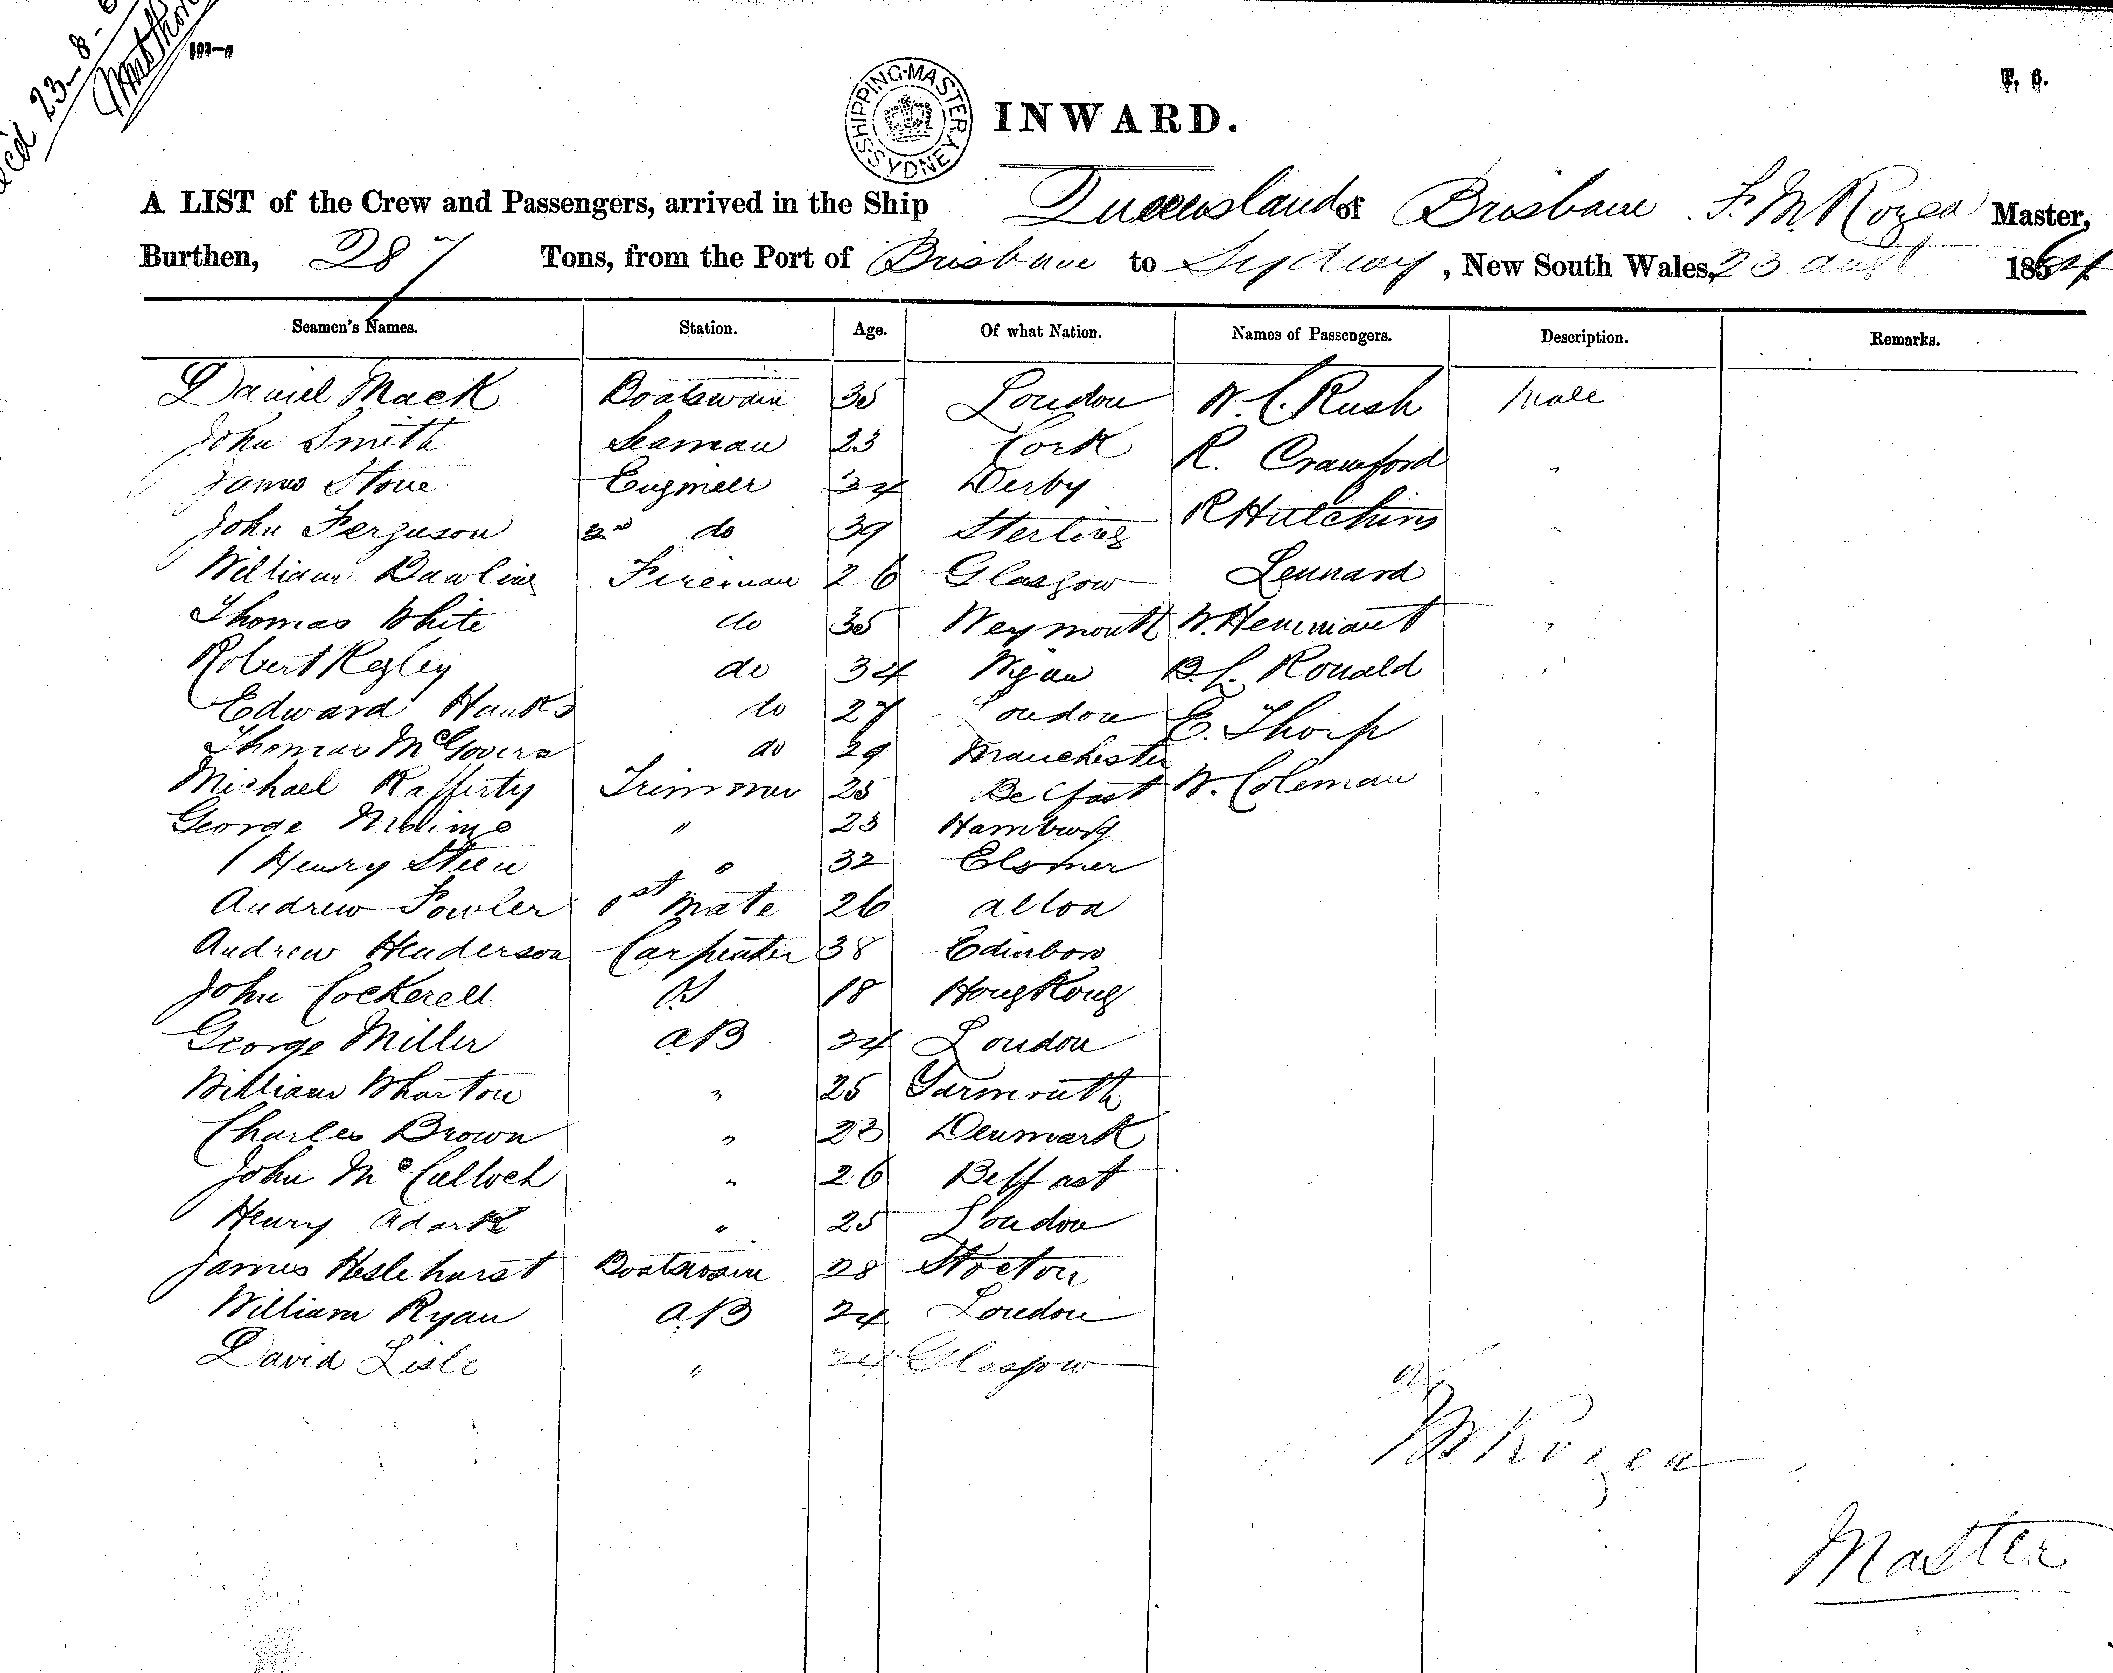 23-8-6
SHIPPING MASTER SYDNEY
INWARD.
A LIST of the Crew and Passengers, arrived in the Ship Queensland of Brisbane Master,
Burthen, 287 Tons, from the Port of Brisbane to Sydney, New South Wales, 23 Augt 1864
Seamen's Names. Station. Age. Of what Nation. Names of Passengers. Description. Remarks.
Daniel Mack Boatswain 35 London W. C. Rush Male
John Smith Seaman 23 Cork R. Crawford "
James Stone Engineer 34 Derby R Hutchins "
John Ferguson 2nd do 39 Sterling Lennard
William Dawling Fireman 26 Glasgow W. Hemmant "
Thomas White do 35 Weymouth Ronald "
Robert Kegley do 34 Wigan E. Thorp
Edward Hanks do 27 London W. Coleman
Thomas McGovern do 29 Manchester
Michael Rafferty Trimmer 25 Belfast
George " 23 Hamburg
Henry Steen " 32 Elsmer
Andrew Fowler 1st Mate 26 Alloa
Andrew Henderson Carpenter 38 Edinboro
John Cockerell OS 18 Hong Kong
George Miller AB 24 London
William Wharton " 25 Yarmouth
Charles Brown " 23 Denmark
John McCulloch " 26 Belfast
Henry Adark " 25 London
James Heslehurst Boatswain 28 Stocton
William Ryan AB 24 London
David Lisle " Glasgow
Master